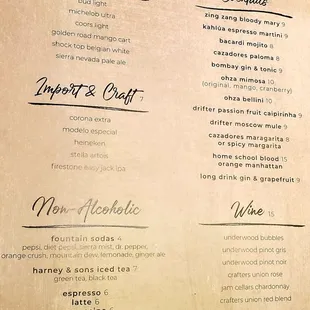 bud light
michelob ultra
coors light
golden road mango cart
shock top belgian white
sierra nevada pale ale
Import & Craft 7
corona extra
modelo especial
heineken
stella artois
firestone easy jack ipa
Non-Alcoholic
fountain sodas 4
pepsi, diet pepsi, sierra mist, dr. pepper,
orange crush, mountain dew, lemonade, ginger ale
harney & sons iced tea 7
green tea, black tea
espresso 6
latte 6
Cocktails
zing zang bloody mary 9
kahlúa espresso martini 9
bacardi mojito 8
cazadores paloma 8
bombay gin & tonic 9
ohza mimosa 10
(original, mango, cranberry)
ohza bellini 10
drifter passion fruit caipirinha 9
drifter moscow mule 9
cazadores maragarita 8
or spicy margarita
home school blood 15
orange manhattan
long drink gin & grapefruit 9
Wine 15
underwood bubbles
underwood pinot gris
underwood pinot noir
crafters union rose
jam cellars chardonnay
crafters union red blend